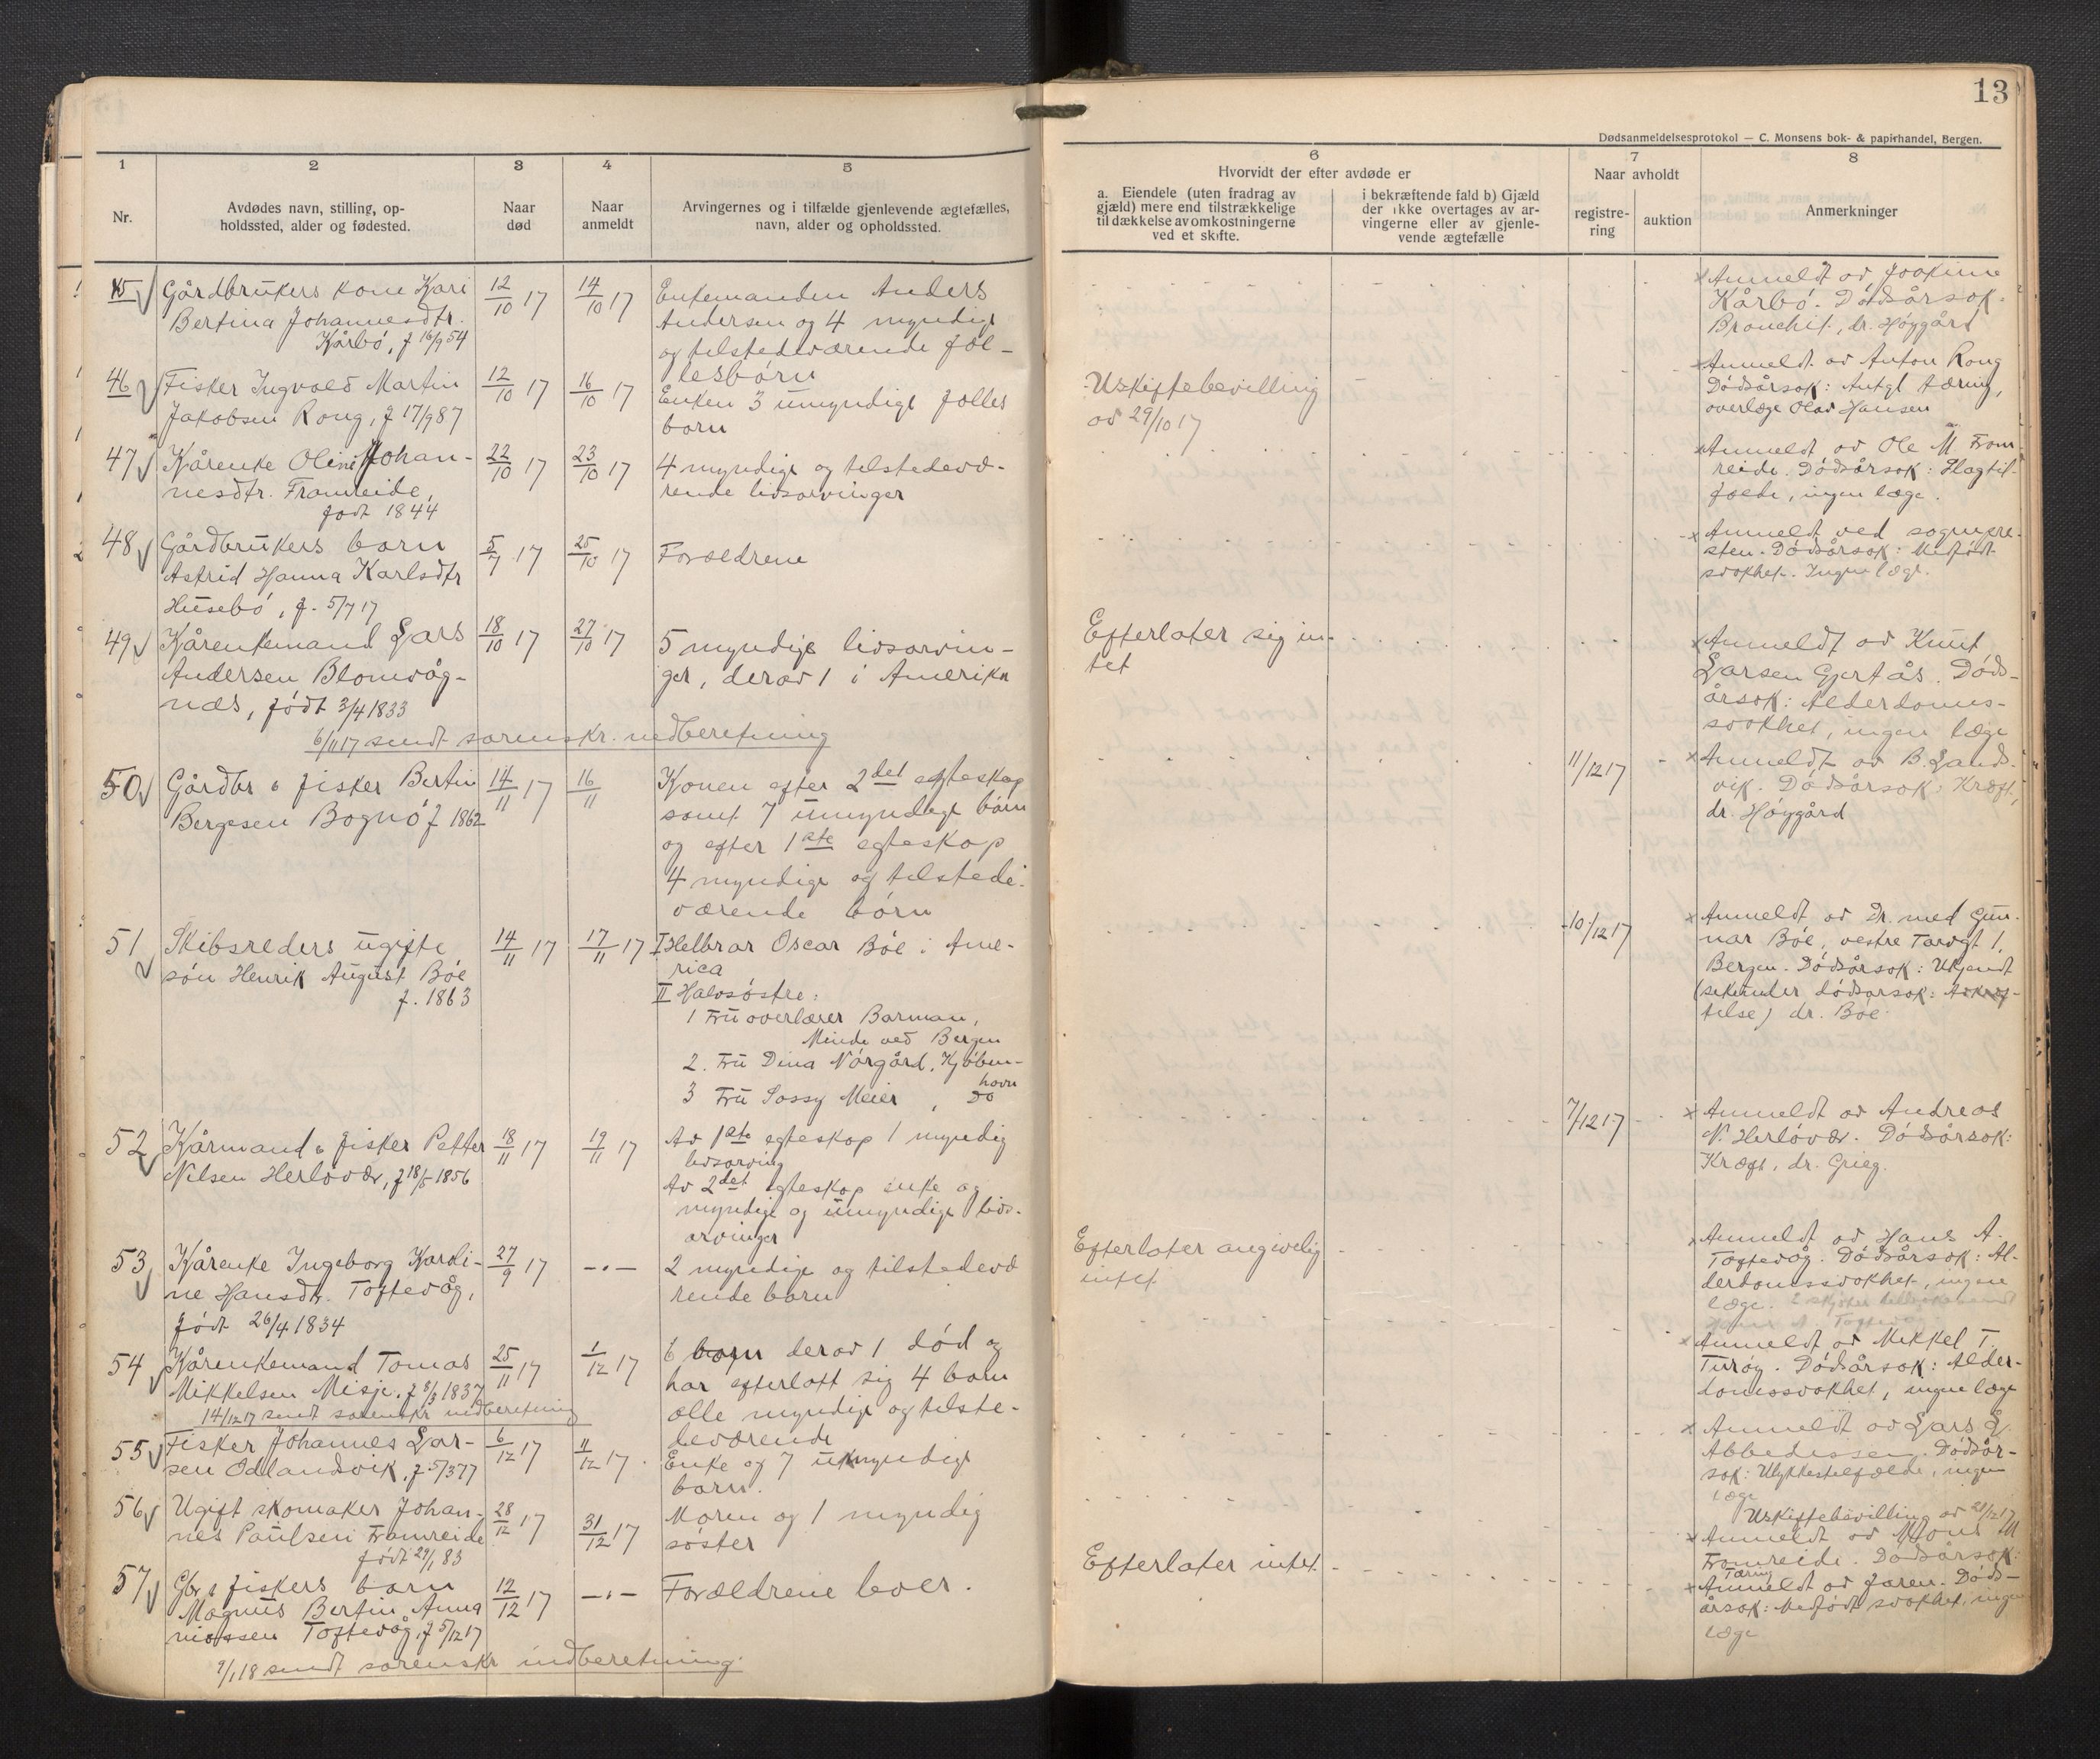 13
Dødsanmeldelsesprotokol — C. Monsens bok- & papirhandel, Bergen.
1
2
3
4
5
Nr.
Avdødes navn, stilling, op-
holdssted, alder og fødested.
Naar
død
Naar
anmeldt
Arvingernes og i tilfælde gjenlevende ægtefælles,
navn, alder og opholdssted.
6
7
8
Hvorvidt der efter avdøde er
a. Eiendele (uten fradrag av
gjæld) mere end tilstrækkelige
til dækkelse av omkostningerne
ved et skifte.
i bekræftende fald b) Gjæld
der ikke overtages av ar-
vingerne eller av gjenle-
vende ægtefælle
Naar avholdt
registre-
ring
auktion
Anmerkninger
45
Gårdbrukers kone Kari
Bertina Johannesdtr.
Kårbö, f 16/9 54
12/10 17
14/10 17
Enkemanden Anders
Andersen og 4 myndige
og tilstedeværende fæl-
lesbörn
Anmeldt av Joakime
Kårbö. Dödsårsak.
Bronchit, dr. Höygård
46
Fisker Ingvald Martin
Jakobsen Rong, f 17/9 87
12/10 17
16/10 17
Enken 3 umyndige fælles
born
Uskiftebevilling
av 29/10 17
Anmeldt av Anton Rong
Dödsårsak: Antgl tæring,
overlæge Olav Hansen
47
Kårenke Oline Johan-
nesdtr. Framreide,
født 1844
22/10 17
23/10 17
4 myndige og tilstedevæ-
rende livsarvinger
Anmeldt av Ole M. Fram-
reide. Dödsårsak: Slagtil-
fælde, ingen læge.
48
Gårdbrukers barn
Astrid Hanna Karlsdtr
Husebö, f. 5/7 17
5/7 17
25/10 17
Forældrene
Anmeldt ved sognepre-
sten. Dödsårsak: Medfödt
svakhet. Ingen læge.
49
Kårenkemand Lars
Andersen Blomvåg-
næs, födt 3/4 1833
18/10 17
27/10 17
5 myndige livsarvin-
ger, derav 1 i Amerika
Efterlater sig in-
tet
Anmeldt av Knut
Larsen Gjertås. Döds-
årsak: Alderdoms-
svakhet, ingen læge
6/11 17 sendt sorenskr. indberetning
50
Gårdbr & fisker Bertin
Bergesen Bognö f 1862
14/11 17
16/11
Konen efter 2det egteskap
samt 7 umyndige börn
og efter 1ste egteskap
4 myndige og tilstede-
værende börn
11/12 17
Anmeldt av B. Lands-
vik. Dödsårsak: Kræft,
dr. Höygård
51
Skibsreders ugifte
sön Henrik August Böe
f. 1863
14/11 17
17/11 17
I Helbror Oscar Böe i Ame-
rica
II Halvsöstre:
1 Fru overlærer Barman,
Minde ved Bergen
2. Fru Dina Nörgård, Kjöben-
havn
3 Fru Sossy Meier, Do
10/12 17
Anmeldt av Dr. med Gun-
nar Böe, vestre Torvgt 1,
Bergen. Dödsårsak: Ukjendt
(sekundær dödsårsak: Avkræf-
telse) dr. Böe
52
Kårmand & fisker Petter
Nilsen Herlövær, f 18/5 1856
18/11 17
19/11 17
Av 1ste egteskap 1 myndig
livsarving
Av 2det egteskap enke og
myndige og umyndige livs-
arvinger
7/12 17
Anmeldt av Andreas
N. Herlövær. Dödsårsak:
Kræft, dr. Grieg.
53
Kårenke Ingeborg Karoli-
ne Hansdr. Toftevåg,
födt 26/4 1834
27/9 17
—〃—
2 myndige og tilstedevæ
rende barn
Efterlater angivelig
intet
Anmeldt av Hans A.
Toftevåg. Dödsårsak: Al-
derdomssvakhet, ingen
læge.
54
Kårenkemand Tomas
Mikkelsen Misje, f 8/3 1837
25/11 17
1/12 17
6 born derav 1 död og
har efterlatt sig 4 barn
alle myndige og tilste-
deværende
Anmeldt av Mikkel T.
Turöy. Dödsårsak: Alder-
domssvakhet, ingen læge
14/12 17 sendt sorenskr indberetning
55
Fisker Johannes Lar-
sen Oddlandsvik, f 5/3 77
6/12 17
11/12 17
Enke og 7 umyndige
barn.
Anmeldt av Lars L
Abbedissen. Dödsår-
sak: Ulykkestilfælde, ingen
læge
Uskiftebevilling av 21/12 17
56
Ugift skomaker Johan-
nes Paulsen Framreide
födt 29/1 83
28/12 17
31/12 17
Moren og 1 myndig
söster
Anmeldt av Mons M
Framreide. Dödsårsak:
Tæring
57
Gbr & fiskers barn
Magnus Bertin Anna
niassen Toftevåg, f 5/12 17
12/12 17
—〃—
Forældrene lever.
Efterlater intet
Anmeldt av faren. Döds-
årsak: Medfödt svakhet, ingen
læge
2/1 18 sendt sorenskr indberetning.